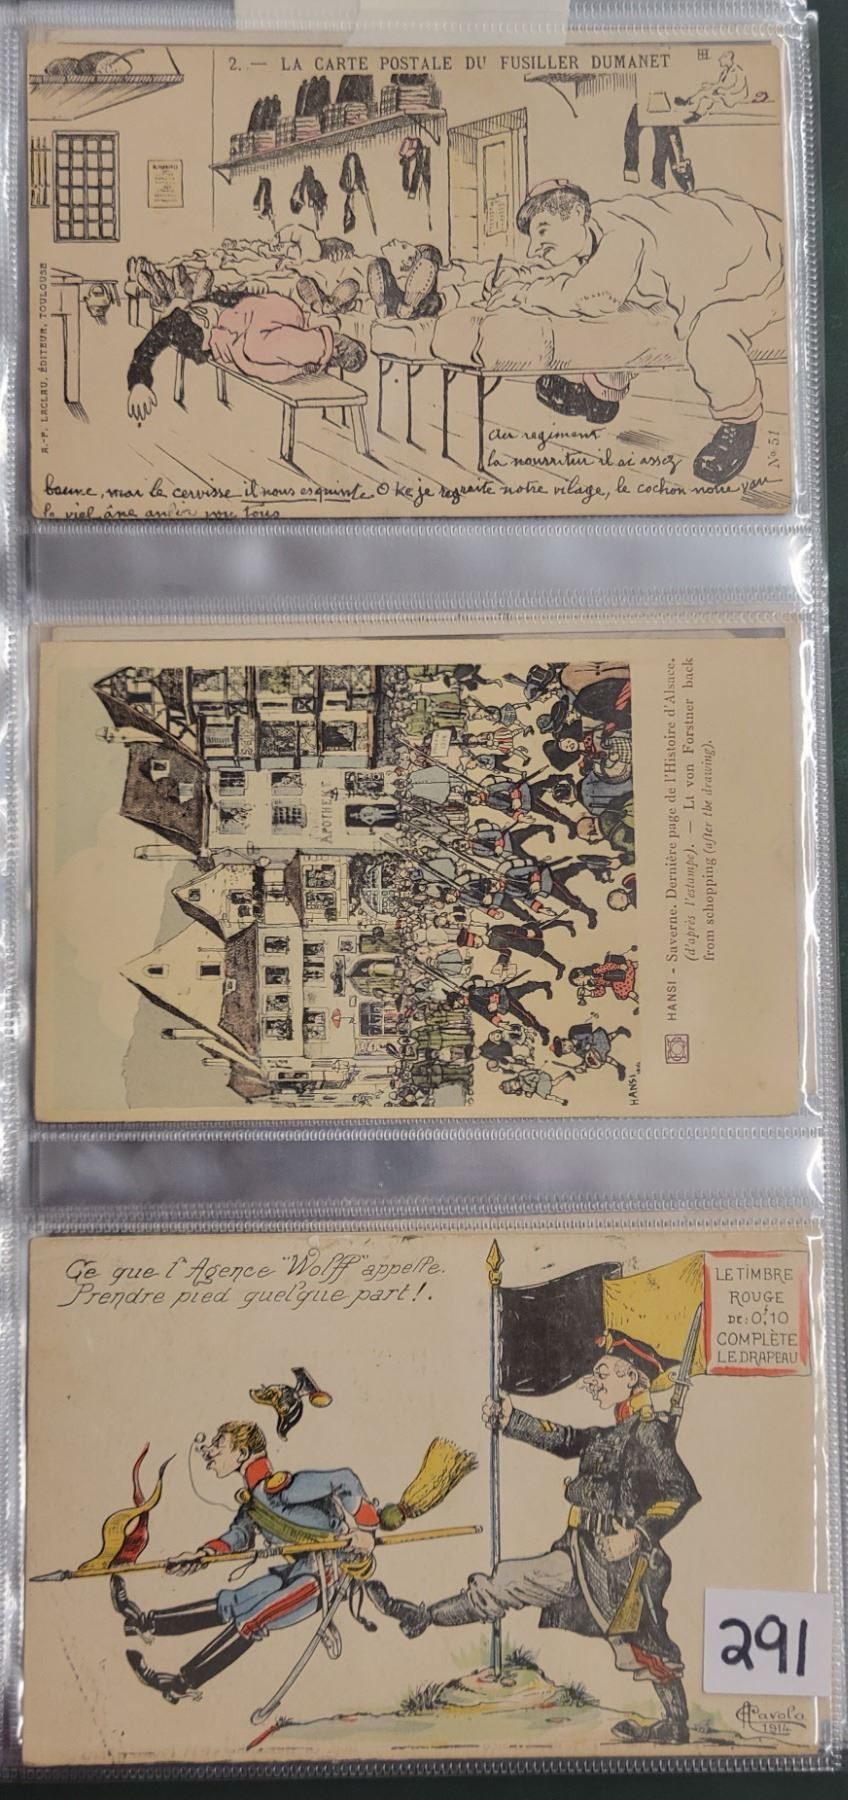 2. — LA CARTE POSTALE DU FUSILLER DUMANET
A.-F. LACLAU, ÉDITEUR, TOULOUSE
Au regiment
la nourritur il ai assez
bonne, mai la cervisse il nous esquinte. O ke je regraite notre vilage, le cochon notre vau
le viel âne anfin vou tous
No 51
APOTHEKE
HANSI
HANSI - Saverne. Dernière page de l'Histoire d'Alsace.
(d'après l'estampe). — Lt von Forstner back
from schopping (after the drawing).
Ce que l'Agence "Wolff" appelle.
Prendre pied quelque part!.
LE TIMBRE
ROUGE
DE: 0f,10
COMPLÈTE
LE DRAPEAU
291
Cavolo
1914